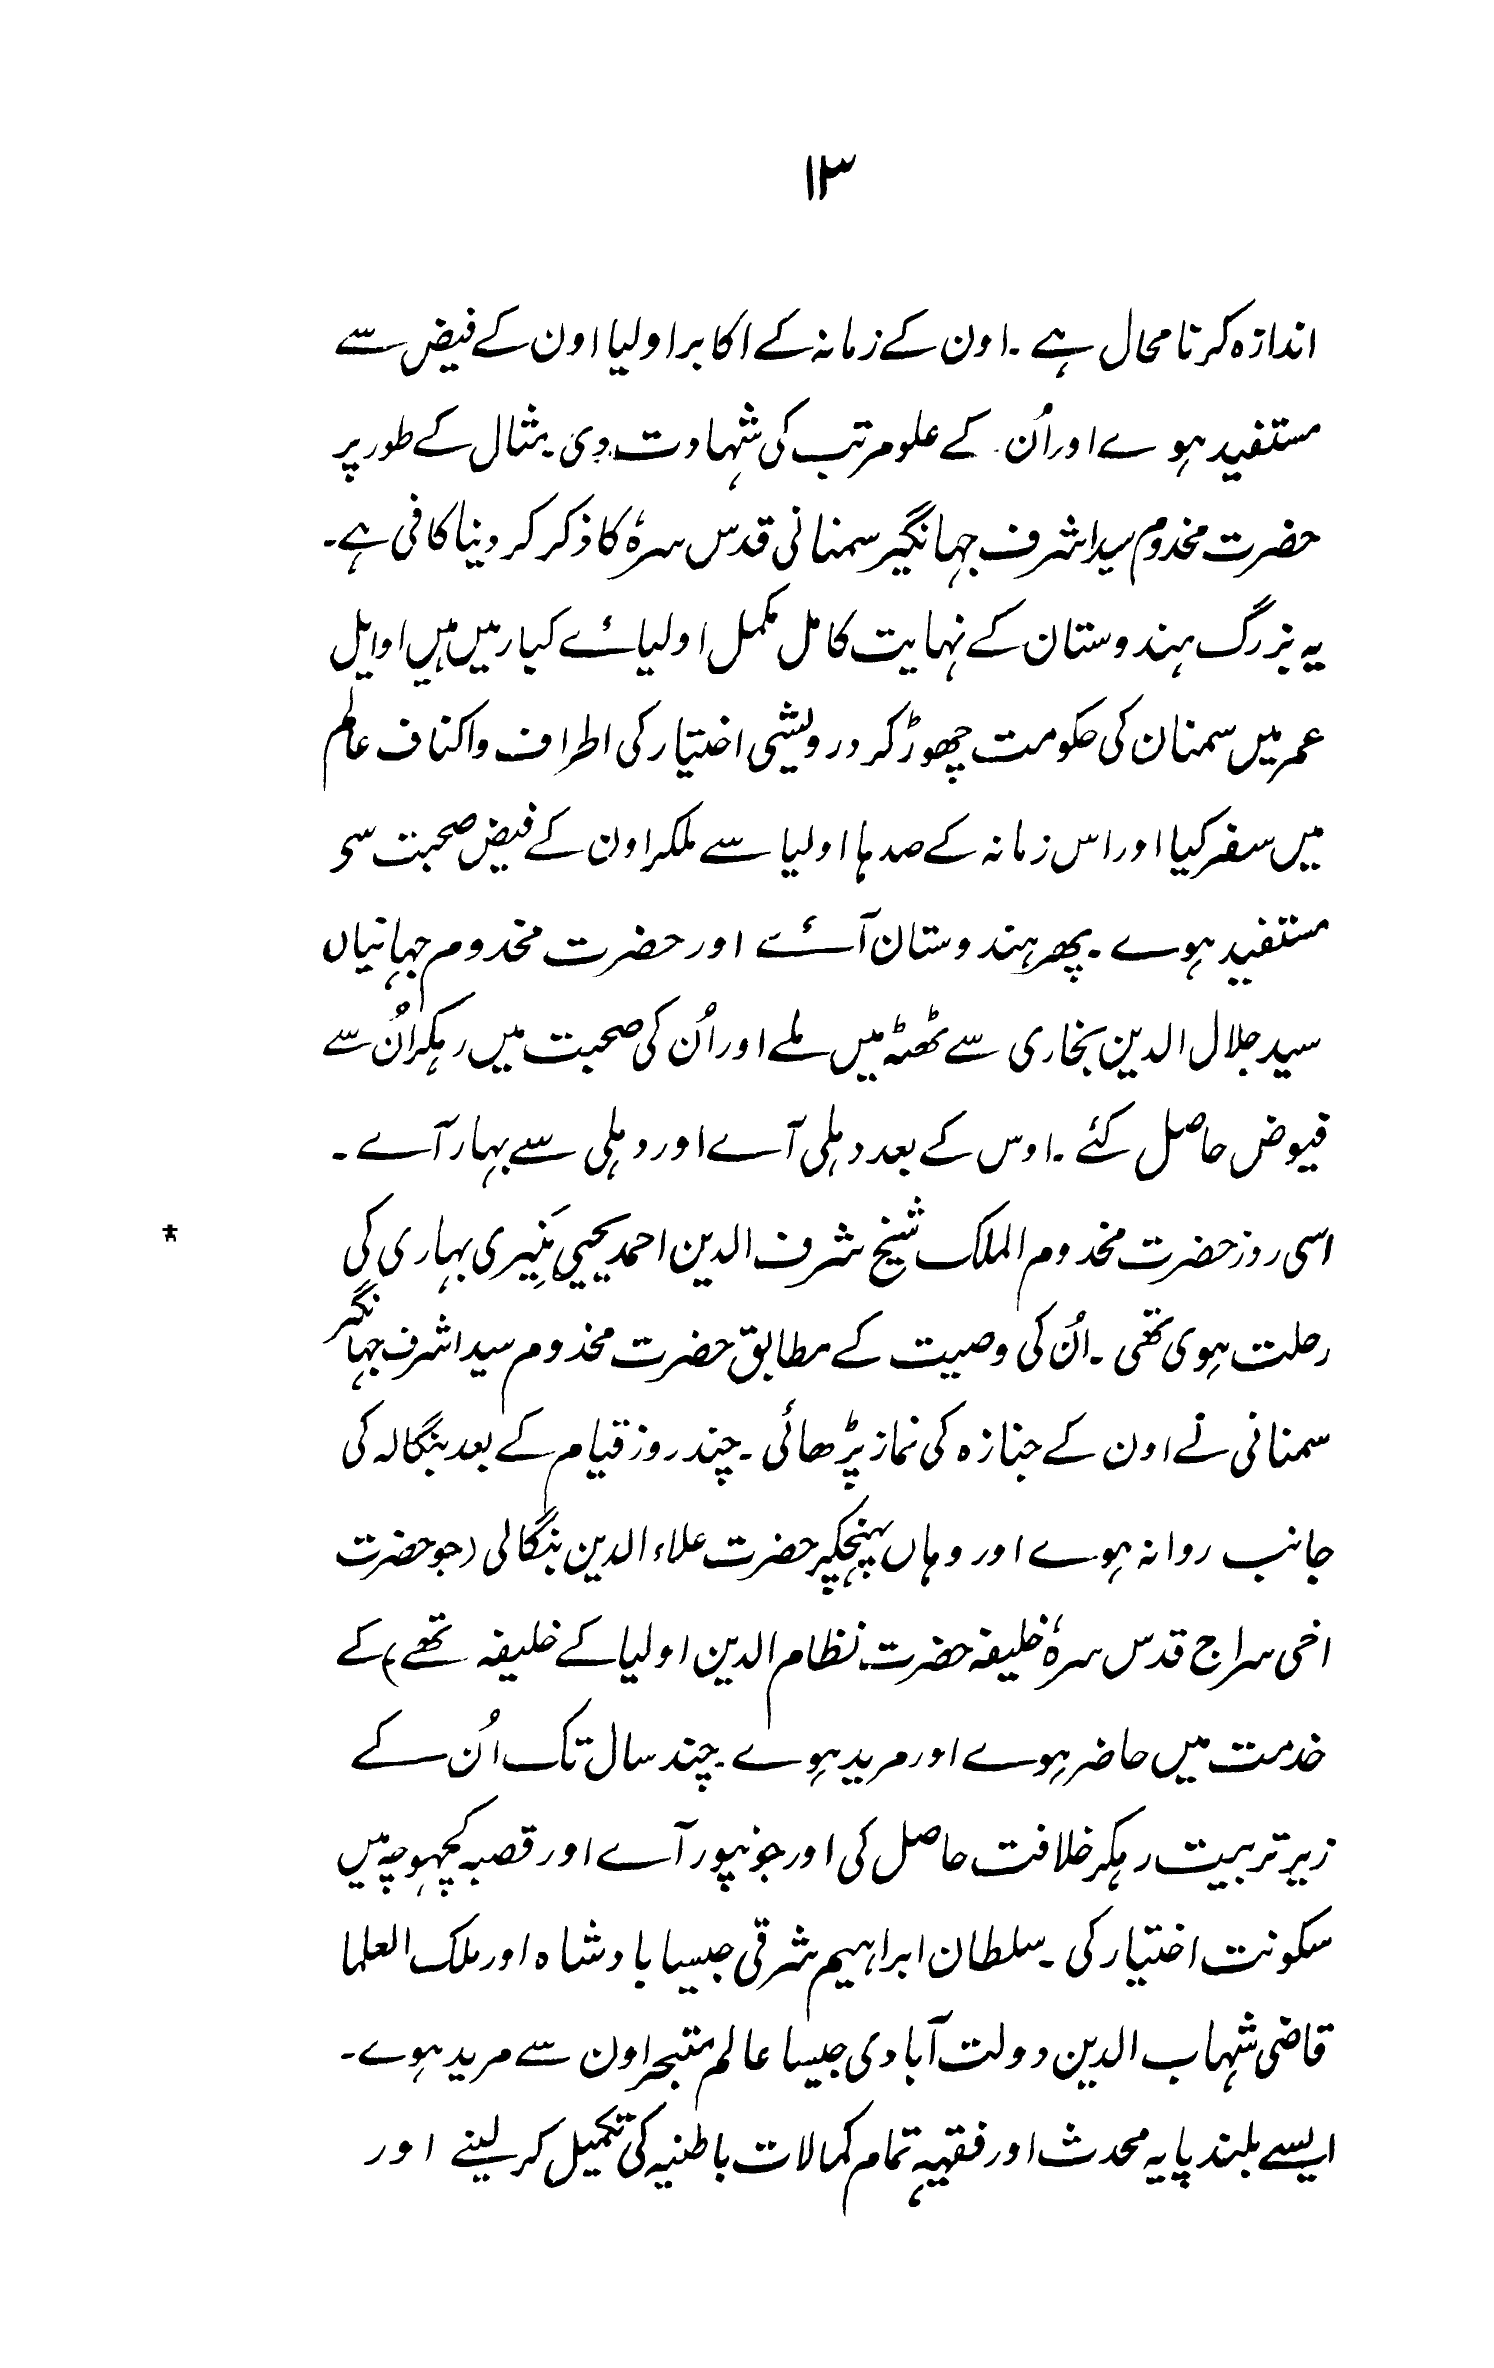 ۱۳
اندازہ کرنا محال ہے۔ اون کے زمانہ کے اکابر اولیا اون کے فیض سے
مستفید ہوے اور اُن کے علو مرتب کی شہادت دی۔ مثال کے طور پر
حضرت مخدوم سید اشرف جہانگیر سمنانی قدس سرہٗ کا ذکر کر دینا کافی ہے۔
یہ بزرگ ہندوستان کے نہایت کامل مکمل اولیائے کبار میں ہیں اوایل
عمر میں سمنان کی حکومت چھوڑ کر درویشی اختیار کی اطراف و اکناف عالم
میں سفر کیا اور اس زمانہ کے صدہا اولیا سے ملکر اون کے فیض صحبت سی
مستفید ہوے۔ پھر ہندوستان آئے اور حضرت مخدوم جہانیاں
سید جلال الدین بخاری سے ٹھٹہ میں ملے اور اُن کی صحبت میں رہکر اُن سے
فیوض حاصل کئے۔ اوس کے بعد دہلی آے اور دہلی سے بہار آے۔
اسی روز حضرت مخدوم الملک شیخ شرف الدین احمد یحیی مَنِیری بہاری کی *
رحلت ہوی تھی۔ اُن کی وصیت کے مطابق حضرت مخدوم سید اشرف جہانگیر
سمنانی نے اون کے جنازہ کی نماز پڑھائی۔ چند روز قیام کے بعد بنگالہ کی
جانب روانہ ہوے اور وہاں پہنچکر حضرت علاء الدین بنگالی (جو حضرت
اخی سراج قدس سرہٗ خلیفہ حضرت نظام الدین اولیا کے خلیفہ تھے) کے
خدمت میں حاضر ہوے اور مرید ہوے۔ چند سال تک اُن کے
زیر تربیت رہکر خلافت حاصل کی اور جونپور آے اور قصبہ کچھوچہ میں
سکونت اختیار کی۔ سلطان ابراہیم شرقی جیسا بادشاہ اور ملک العلما
قاضی شہاب الدین دولت آبادی جیسا عالم متبحر اون سے مرید ہوے۔
ایسے بلند پایہ محدث اور فقیہہ تمام کمالات باطنیہ کی تکمیل کر لینے اور